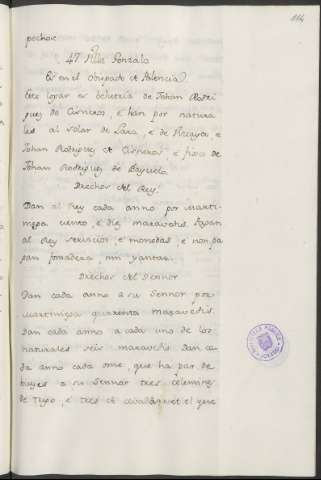 114
pechar.
47. Villa Gonzalo
Es en el Obispado de Palencia
Este logar es behetria de Johan Rodri
guez de Cisneros, e han por natura
les al Solar de Lara, e de Vizcaya, e
Johan Rodriguez de Cisneros, e fijos de
Johan Rodriguez de
Drechos del Rey.
Dan al Rey cada anno por Marti-
niega ciento, e diez maravedis. Pagan
al Rey servicios, e monedas, e non pa
gan fonsadera, nin yantar.
Drechos del Sennor
Dan cada anno a su Sennor por
martiniega quarenta maravedis.
Dan cada anno a cada uno de los
naturales seis maravedis. Dan ca
da anno cada ome, que ha par de
bueyes a su Sennor tres celemines
de trigo, e tres de cebada, et el que